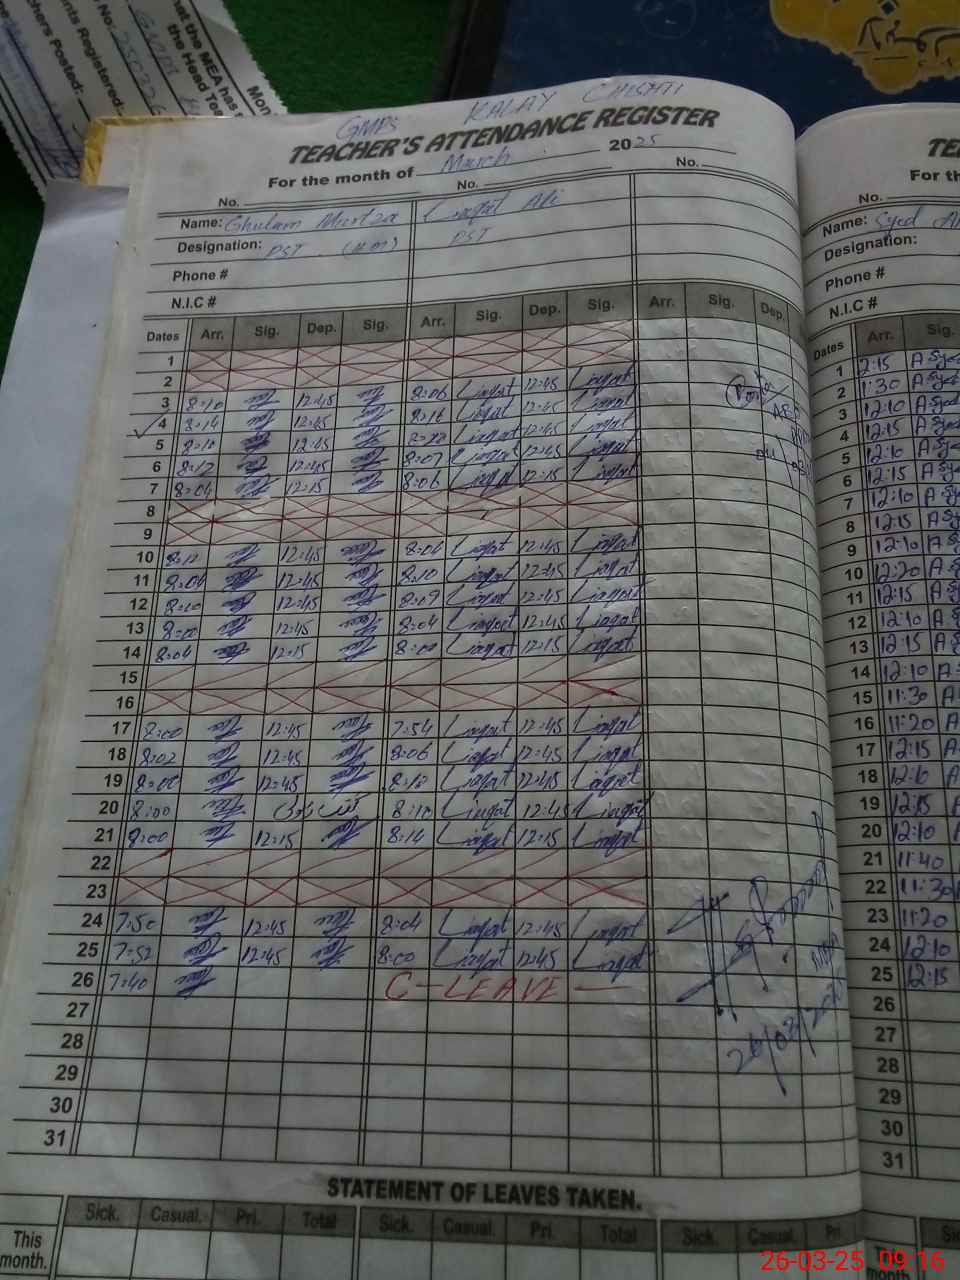 GMPS KALAY CHISHTI
TEACHER'S ATTENDANCE REGISTER
For the month of March 2025
No. No. No.
Name: Ghulam Murtza Liaqat Ali
Designation: PST (H.M) PST
Phone #
N.I.C #
Dates Arr. Sig. Dep. Sig. Arr. Sig. Dep. Sig. Arr. Sig. Dep.
1
2
3 8:10 12:45 8:06 Liaqat 12:45 Liaqat
4 8:14 12:45 8:16 Liaqat 12:45 Liaqat
5 8:10 12:45 Liaqat 12:45 Liaqat
6 8:12 12:45 8:07 Liaqat 12:45 Liaqat
7 8:04 12:15 8:06 Liaqat 12:15 Liaqat
8
9
10 8:12 12:45 8:06 Liaqat 12:45 Liaqat
11 8:04 12:45 8:10 Liaqat 12:45 Liaqat
12 8:10 12:45 8:09 Liaqat 12:45 Liaqat
13 8:00 12:45 8:04 Liaqat 12:45 Liaqat
14 8:04 12:15 8:00 Liaqat 12:15 Liaqat
15
16
17 8:00 12:45 7:54 Liaqat 12:45 Liaqat
18 8:02 12:45 8:06 Liaqat 12:45 Liaqat
19 8:00 12:45 8:12 Liaqat 12:45 Liaqat
20 8:00 8:10 Liaqat 12:45 Liaqat
21 8:00 12:15 8:14 Liaqat 12:15 Liaqat
22
23
24 7:50 12:45 8:04 Liaqat 12:45 Liaqat
25 7:52 12:45 8:00 Liaqat 12:45 Liaqat
26 7:40 C-LEAVE
27
28
29
30
31
STATEMENT OF LEAVES TAKEN.
Sick. Casual. Pri. Total Sick. Casual. Pri. Total Sick. Casual. Pri.
This month.
No.
Name: Syed
Designation:
Phone #
N.I.C #
Dates Arr. Sig.
1 2:15 A Syed
2 1:30 A Syed
3 12:10 A Syed
4 12:15 A Syed
5 12:10 A Syed
6 12:15 A Syed
7 12:10 A Syed
8 12:15 A Sy
9 12:10 A Sy
10 12:20 A Sy
11 12:15 A Sy
12 12:10 A Sy
13 12:15 A Sy
14 12:10 A
15 11:30 A
16 11:20 A
17 12:15 A
18 A
19 12:15 A
20 12:10 A
21 11:40 A
22 11:30
23 11:20
24 12:10
25 12:15
26
27
28
29
30
31
26-03-25 09:16